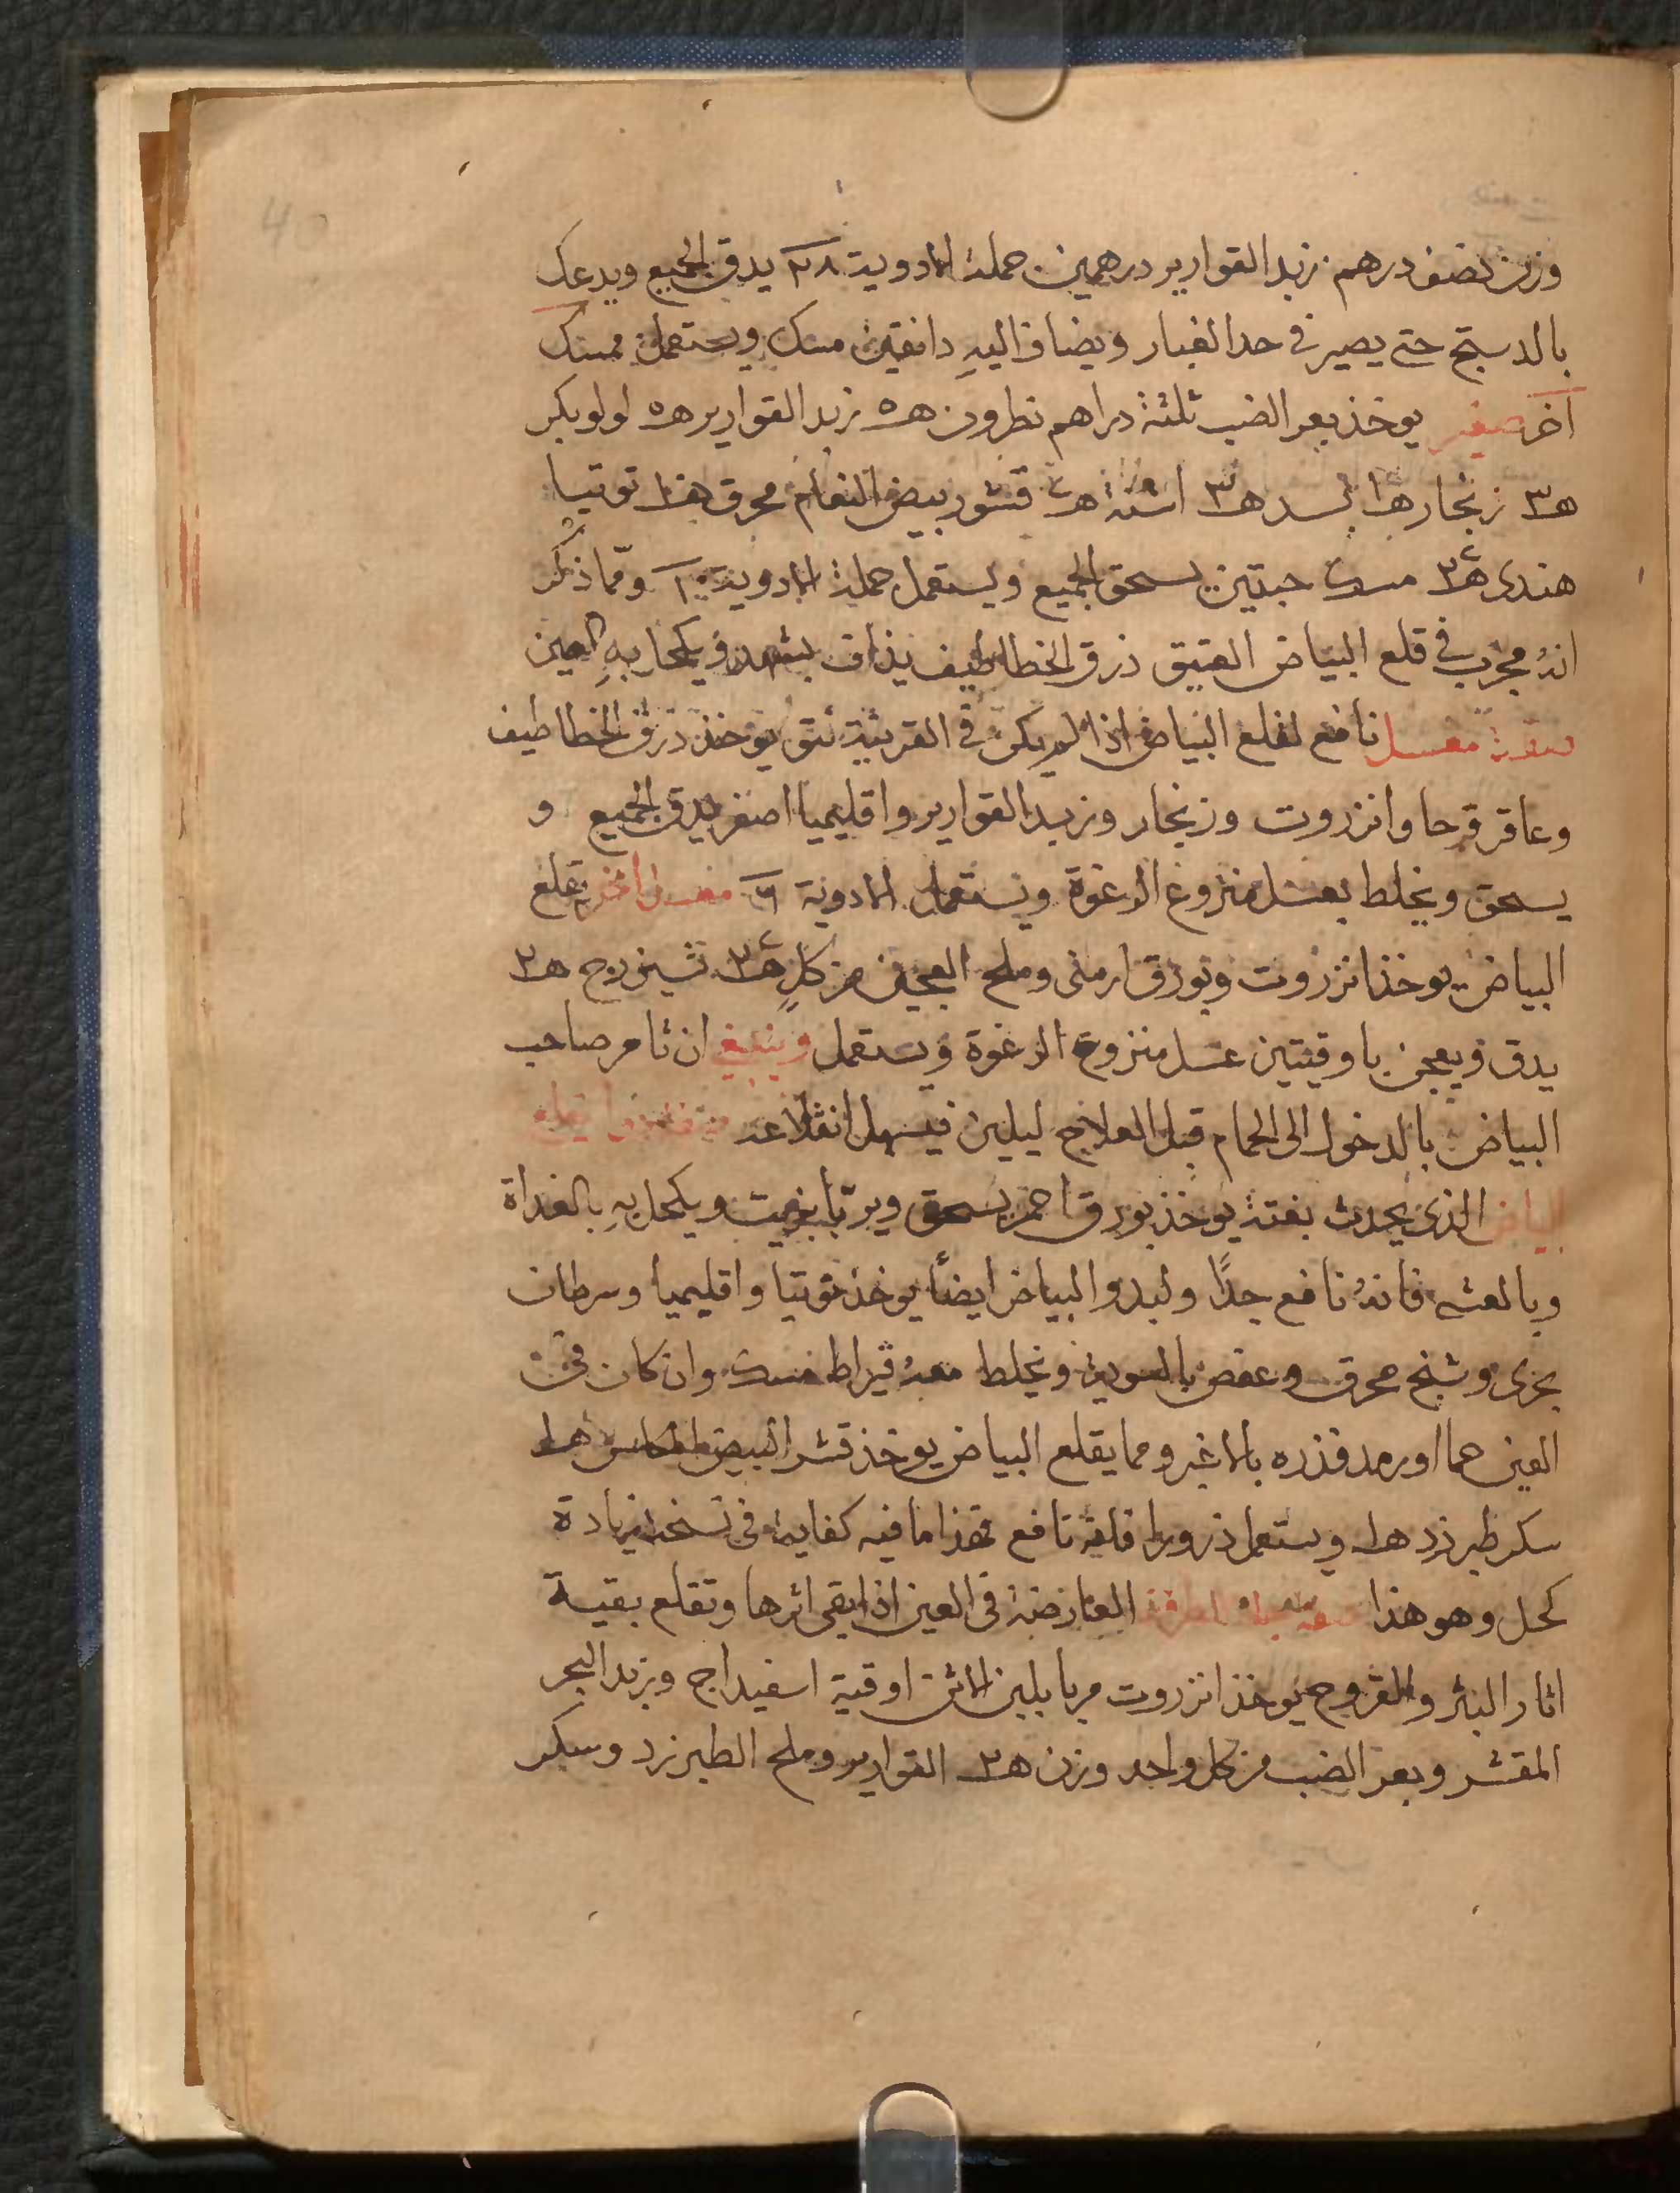 40
وزن نصف درهم زبد القوارير درهمين جملة الادوية ٢٨ يدق الجميع ويدعك
بالدستج حتى يصير فى حد الغبار ويضاف اليهِ دانقين مسك ويستعمل ممسك
آخر صغير يوخذ بعر الضب ثلثة دراهم نطرون هـ ٥ زبد القوارير هـ ٥ لولو بكر
هـ ٣ زنجار هـ ١ بسد هـ ٣ اشنة هـ قشور بيض النعام محرق هـ ١٠ توتيا
هندى هـ ٣ مسك حبتين يسحق الجميع ويستعمل جملة الادوية ١٠ وممّا ذكر
انهُ مجرب فى قلع البياض العتيق ذرق الخطاطيف يذاف بشهد ويكحل بهِ العين
صفة معسل نافع لقلع البياض اذا لم يكن فى القرنية نتق يوخذ ذرق الخطاطيف
وعاقر قرحا وانزروت وزنجار وزبد القوارير واقليميا اصفر يدق الجميع و
يسحق ويخلط بعسل منزوع الرغوة ويستعمل الادوية ٦ معسل اخر يقلع
البياض يوخذ انزروت وبورق ارمنى وملح العجين من كلٍ هـ ٣ شيزرج هـ ٢
يدق ويعجن باوقيتين عسل منزوع الرغوة ويستعمل وينبغى ان تامر صاحب
البياض بالدخول الى الحمام قبل العلاج ليلين فيسهل انقلاعه
البياض الذى يحدث بغتة يوخذ بورق احمر يسحق ويربّا بزيت ويكحل بهِ بالغداة
وبالعشى فانهُ نافع جدًا ولبدو البياض ايضًا يوخذ توتيا واقليميا وسرطان
بحرى وشنج محرق وعفص بالسوية ويخلط معهُ قيراط مسك وان كان فى
العين حما او رمد فذره بالاغبر ومما يقلع البياض يوخذ قشر البيض هـ ١
سكر طبرزد هـ ١ ويستعمل ذرورا فانه نافع فهذا ما فيه كفاية وفى نسخة زيادة
كحل وهو هذا صفة الطرفة العارضة فى العين اذا بقى اثرها وتقلع بقية
اثار البثر والقروح يوخذ انزروت مربا بلبن الاتن اوقية اسفيداج وزبد البحر
المقشر وبعر الضب من كل واحد وزن هـ ٢ القوارير وملح الطبرزد وسكر